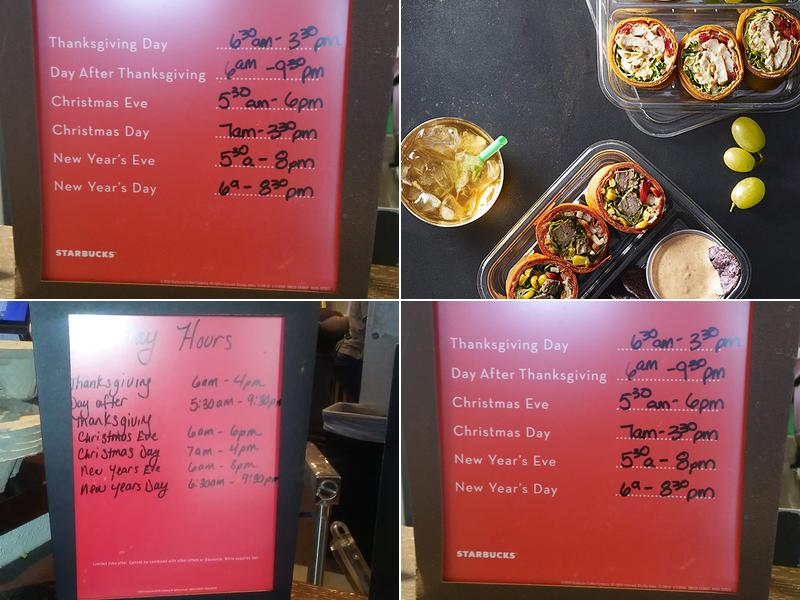 Thanksgiving Day 6³⁰am - 3³⁰pm
Day After Thanksgiving 6am - 9³⁰pm
Christmas Eve 5³⁰am - 6pm
Christmas Day 7am - 3³⁰pm
New Year's Eve 5³⁰a - 8pm
New Year's Day 6ᵃ - 8³⁰pm
STARBUCKS
Hours
Thanksgiving 6am - 4pm
Day after 5:30am - 9:30pm
Thanksgiving
Christmas Eve 6am - 6pm
Christmas Day 7am - 4pm
New Years Eve 6am - 8pm
New Years Day 6:30am - 9:30pm
Limited time offer. Cannot be combined with other offers or discounts. While supplies last.
Thanksgiving Day 6³⁰am - 3³⁰pm
Day After Thanksgiving 6am - 9³⁰pm
Christmas Eve 5³⁰am - 6pm
Christmas Day 7am - 3³⁰pm
New Year's Eve 5³⁰a - 8pm
New Year's Day 6ᵃ - 8³⁰pm
STARBUCKS